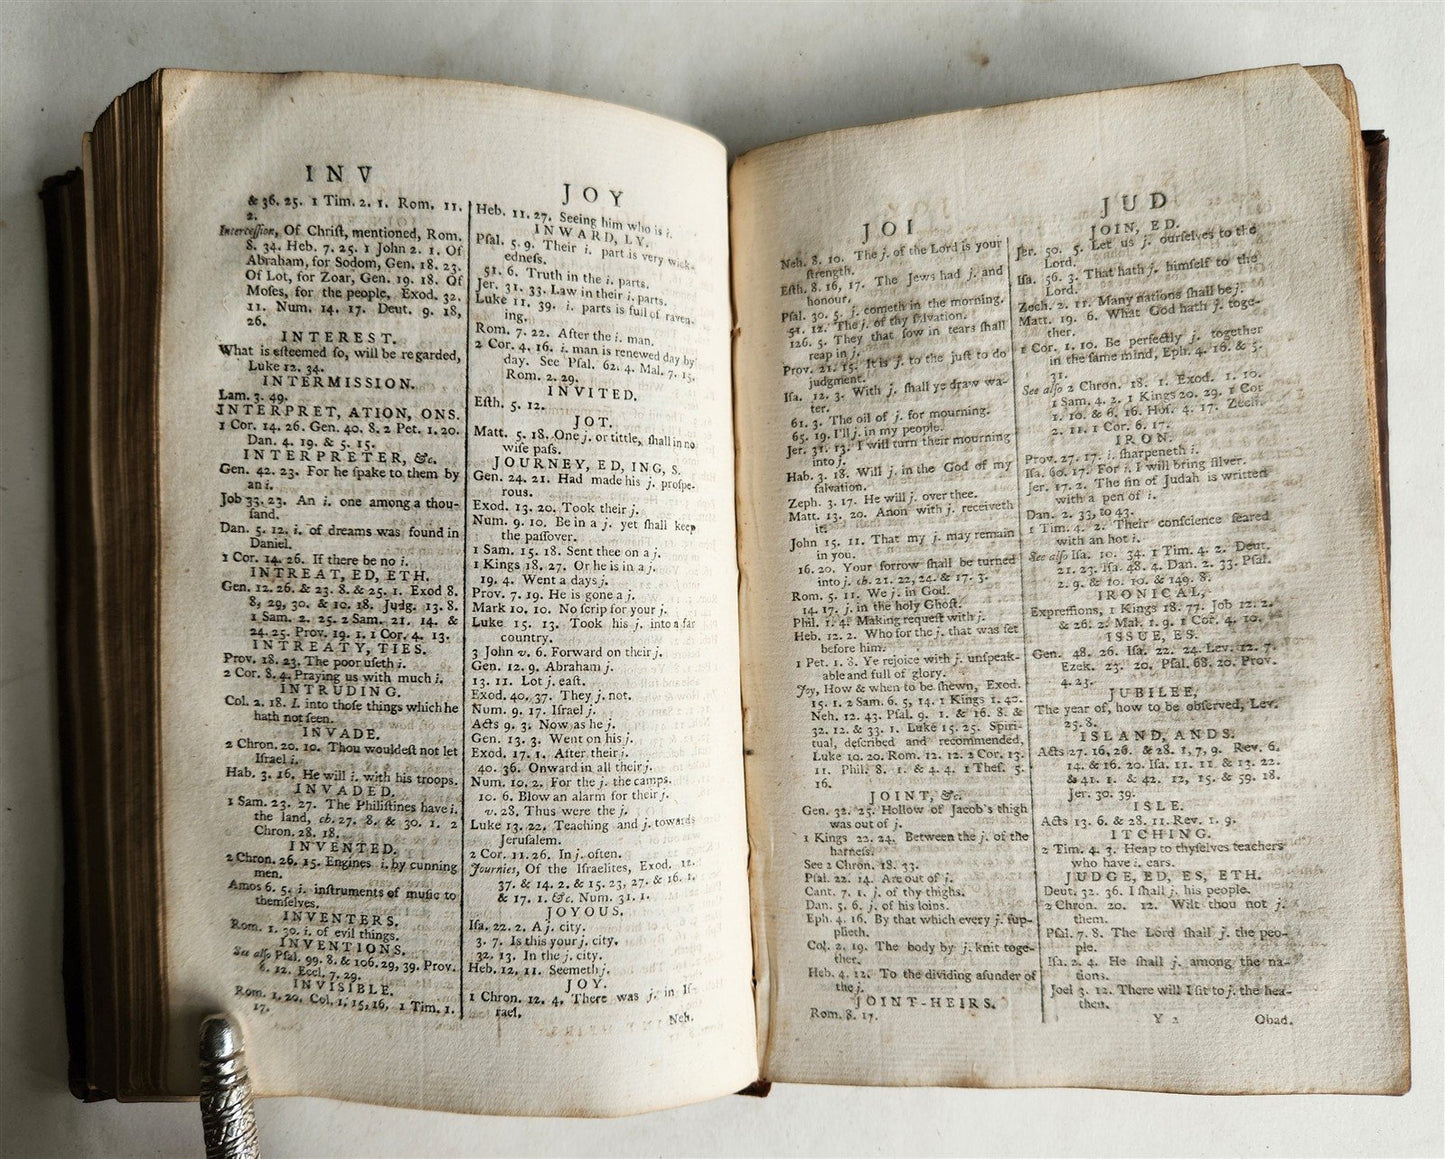 INV
& 36. 25. 1 Tim. 2. 1. Rom. 11.
2.
Interceſſion, Of Chriſt, mentioned, Rom.
8. 34. Heb. 7. 25. 1 John 2. 1. Of
Abraham, for Sodom, Gen. 18. 23.
Of Lot, for Zoar, Gen. 19. 18. Of
Moſes, for the people, Exod. 32.
11. Num. 14. 17. Deut. 9. 18,
26.
INTEREST.
What is eſteemed ſo, will be regarded,
Luke 12. 34.
INTERMISSION.
Lam. 3. 49.
INTERPRET, ATION, ONS.
1 Cor. 14. 26. Gen. 40. 8. 2 Pet. 1. 20.
Dan. 4. 19. & 5. 15.
INTERPRETER, &c.
Gen. 42. 23. For he ſpake to them by
an i.
Job 33. 23. An i. one among a thou-
ſand.
Dan. 5. 12. i. of dreams was found in
Daniel.
1 Cor. 14. 26. If there be no i.
INTREAT, ED, ETH.
Gen. 12. 26. & 23. 8. & 25. 1. Exod 8.
8, 29, 30. & 10. 18. Judg. 13. 8.
1 Sam. 2. 25. 2 Sam. 21. 14. &
24. 25. Prov. 19. 1. 1 Cor. 4. 13.
INTREATY, TIES.
Prov. 18. 23. The poor uſeth i.
2 Cor. 8. 4. Praying us with much i.
INTRUDING.
Col. 2. 18. I. into thoſe things which he
hath not ſeen.
INVADE.
2 Chron. 20. 10. Thou wouldeſt not let
Iſrael i.
Hab. 3. 16. He will i. with his troops.
INVADED.
1 Sam. 23. 27. The Philiſtines have i.
the land, ch. 27. 8. & 30. 1. 2
Chron. 28. 18.
INVENTED.
2 Chron. 26. 15. Engines i. by cunning
men.
Amos 6. 5. i. inſtruments of muſic to
themſelves.
INVENTERS.
Rom. 1. 30. i. of evil things.
INVENTIONS.
See alſo Pſal. 99. 8. & 106. 29, 39. Prov.
8. 12. Eccl. 7. 29.
INVISIBLE.
Rom. 1. 20. Col. 1. 15, 16. 1 Tim. 1.
17.
JOY
Heb. 11. 27. Seeing him who is i.
INWARD, LY.
Pſal. 5. 9. Their i. part is very wick-
edneſs.
51. 6. Truth in the i. parts.
Jer. 31. 33. Law in their i. parts.
Luke 11. 39. i. parts is full of raven-
ing.
Rom. 7. 22. After the i. man.
2 Cor. 4. 16. i. man is renewed day by
day. See Pſal. 62. 4. Mal. 7. 15.
Rom. 2. 29.
INVITED.
Eſth. 5. 12.
JOT.
Matt. 5. 18. One j. or tittle, ſhall in no
wiſe paſs.
JOURNEY, ED, ING, S.
Gen. 24. 21. Had made his j. proſpe-
rous.
Exod. 13. 20. Took their j.
Num. 9. 10. Be in a j. yet ſhall keep
the paſſover.
1 Sam. 15. 18. Sent thee on a j.
1 Kings 18. 27. Or he is in a j.
19. 4. Went a days j.
Prov. 7. 19. He is gone a j.
Mark 10. 10. No ſcrip for your j.
Luke 15. 13. Took his j. into a far
country.
3 John v. 6. Forward on their j.
Gen. 12. 9. Abraham j.
13. 11. Lot j. eaſt.
Exod. 40. 37. They j. not.
Num. 9. 17. Iſrael j.
Acts 9. 3. Now as he j.
Gen. 13. 3. Went on his j.
Exod. 17. 1. After their j.
40. 36. Onward in all their j.
Num. 10. 2. For the j. the camps.
10. 6. Blow an alarm for their j.
v. 28. Thus were the j.
Luke 13. 22. Teaching and j. towards
Jeruſalem.
2 Cor. 11. 26. In j. often.
Journies, Of the Iſraelites, Exod. 12.
37. & 14. 2. & 15. 23, 27. & 16. 1.
& 17. 1. &c. Num. 31. 1.
JOYOUS.
Iſa. 22. 2. A j. city.
3. 7. Is this your j. city.
32. 13. In the j. city.
Heb. 12. 11. Seemeth j.
JOY.
1 Chron. 12. 4. There was j. in Iſ-
rael.
Neh.
JOI
Neh. 8. 10. The j. of the Lord is your
ſtrength.
Eſth. 8. 16, 17. The Jews had j. and
honour.
Pſal. 30. 5. j. cometh in the morning.
51. 12. The j. of thy ſalvation.
126. 5. They that ſow in tears ſhall
reap in j.
Prov. 21. 15. It is j. to the juſt to do
judgment.
Iſa. 12. 3. With j. ſhall ye draw wa-
ter.
61. 3. The oil of j. for mourning.
65. 19. I'll j. in my people.
Jer. 31. 13. I will turn their mourning
into j.
Hab. 3. 18. Will j. in the God of my
ſalvation.
Zeph. 3. 17. He will j. over thee.
Matt. 13. 20. Anon with j. receiveth
it.
John 15. 11. That my j. may remain
in you.
16. 20. Your ſorrow ſhall be turned
into j. ch. 21. 22, 24. & 17. 3.
Rom. 5. 11. We j. in God.
14. 17. j. in the holy Ghoſt.
Phil. 1. 4. Making requeſt with j.
Heb. 12. 2. Who for the j. that was ſet
before him.
1 Pet. 1. 8. Ye rejoice with j. unſpeak-
able and full of glory.
Joy, How & when to be ſhewn, Exod.
15. 1. 2 Sam. 6. 5, 14. 1 Kings 1. 40.
Neh. 12. 43. Pſal. 9. 1. & 16. 8. &
32. 12. & 33. 1. Luke 15. 25. Spiri-
tual, deſcribed and recommended.
Luke 10. 20. Rom. 12. 12. 2 Cor. 13.
11. Phil. 8. 1. & 4. 4. 1 Theſ. 5.
16.
JOINT, &c.
Gen. 32. 25. Hollow of Jacob's thigh
was out of j.
1 Kings 22. 24. Between the j. of the
harneſs.
See 2 Chron. 18. 33.
Pſal. 22. 14. Are out of j.
Cant. 7. 1. j. of thy thighs.
Dan. 5. 6. j. of his loins.
Eph. 4. 16. By that which every j. ſup-
plieth.
Col. 2. 19. The body by j. knit toge-
ther.
Heb. 4. 12. To the dividing aſunder of
the j.
JOINT-HEIRS.
Rom. 8. 17.
JUD
JOIN, ED.
Jer. 50. 5. Let us j. ourſelves to the
Lord.
Iſa. 56. 3. That hath j. himſelf to the
Lord.
Zech. 2. 11. Many nations ſhall be j.
Matt. 19. 6. What God hath j. toge-
ther.
1 Cor. 1. 10. Be perfectly j. together
in the ſame mind, Eph. 4. 16. & 5.
31.
See alſo 2 Chron. 18. 1. Exod. 1. 10.
1 Sam. 4. 2. 1 Kings 20. 29. 1 Cor
1. 10. & 6. 16. Hoſ. 4. 17. Zech.
2. 11. 1 Cor. 6. 17.
IRON.
Prov. 27. 17. i. ſharpeneth i.
Iſa. 60. 17. For i. I will bring ſilver.
Jer. 17. 2. The ſin of Judah is written
with a pen of i.
Dan. 2. 33, to 43.
1 Tim. 4. 2. Their conſcience ſeared
with an hot i.
See alſo Iſa. 10. 34. 1 Tim. 4. 2. Deut.
21. 23. Iſa. 48. 4. Dan. 2. 33. Pſal.
2. 9. & 10. 10. & 149. 8.
IRONICAL,
Expreſſions, 1 Kings 18. 77. Job 12. 2.
& 26. 2. Mal. 1. 9. 1 Cor. 4. 10.
ISSUE, ES.
Gen. 48. 26. Iſa. 22. 24. Lev. 12. 7.
Ezek. 23. 20. Pſal. 68. 20. Prov.
4. 23.
JUBILEE,
The year of, how to be obſerved, Lev.
25. 8.
ISLAND, ANDS.
Acts 27. 16, 26. & 28. 1, 7, 9. Rev. 6.
14. & 16. 20. Iſa. 11. 11. & 13. 22.
& 41. 1. & 42. 12, 15. & 59. 18.
Jer. 30. 39.
ISLE.
Acts 13. 6. & 28. 11. Rev. 1. 9.
ITCHING.
2 Tim. 4. 3. Heap to thyſelves teachers
who have i. ears.
JUDGE, ED, ES, ETH.
Deut. 32. 36. I ſhall j. his people.
2 Chron. 20. 12. Wilt thou not j.
them.
Pſal. 7. 8. The Lord ſhall j. the peo-
ple.
Iſa. 2. 4. He ſhall j. among the na-
tions.
Joel 3. 12. There will I ſit to j. the hea-
then.
Y 2
Obad.